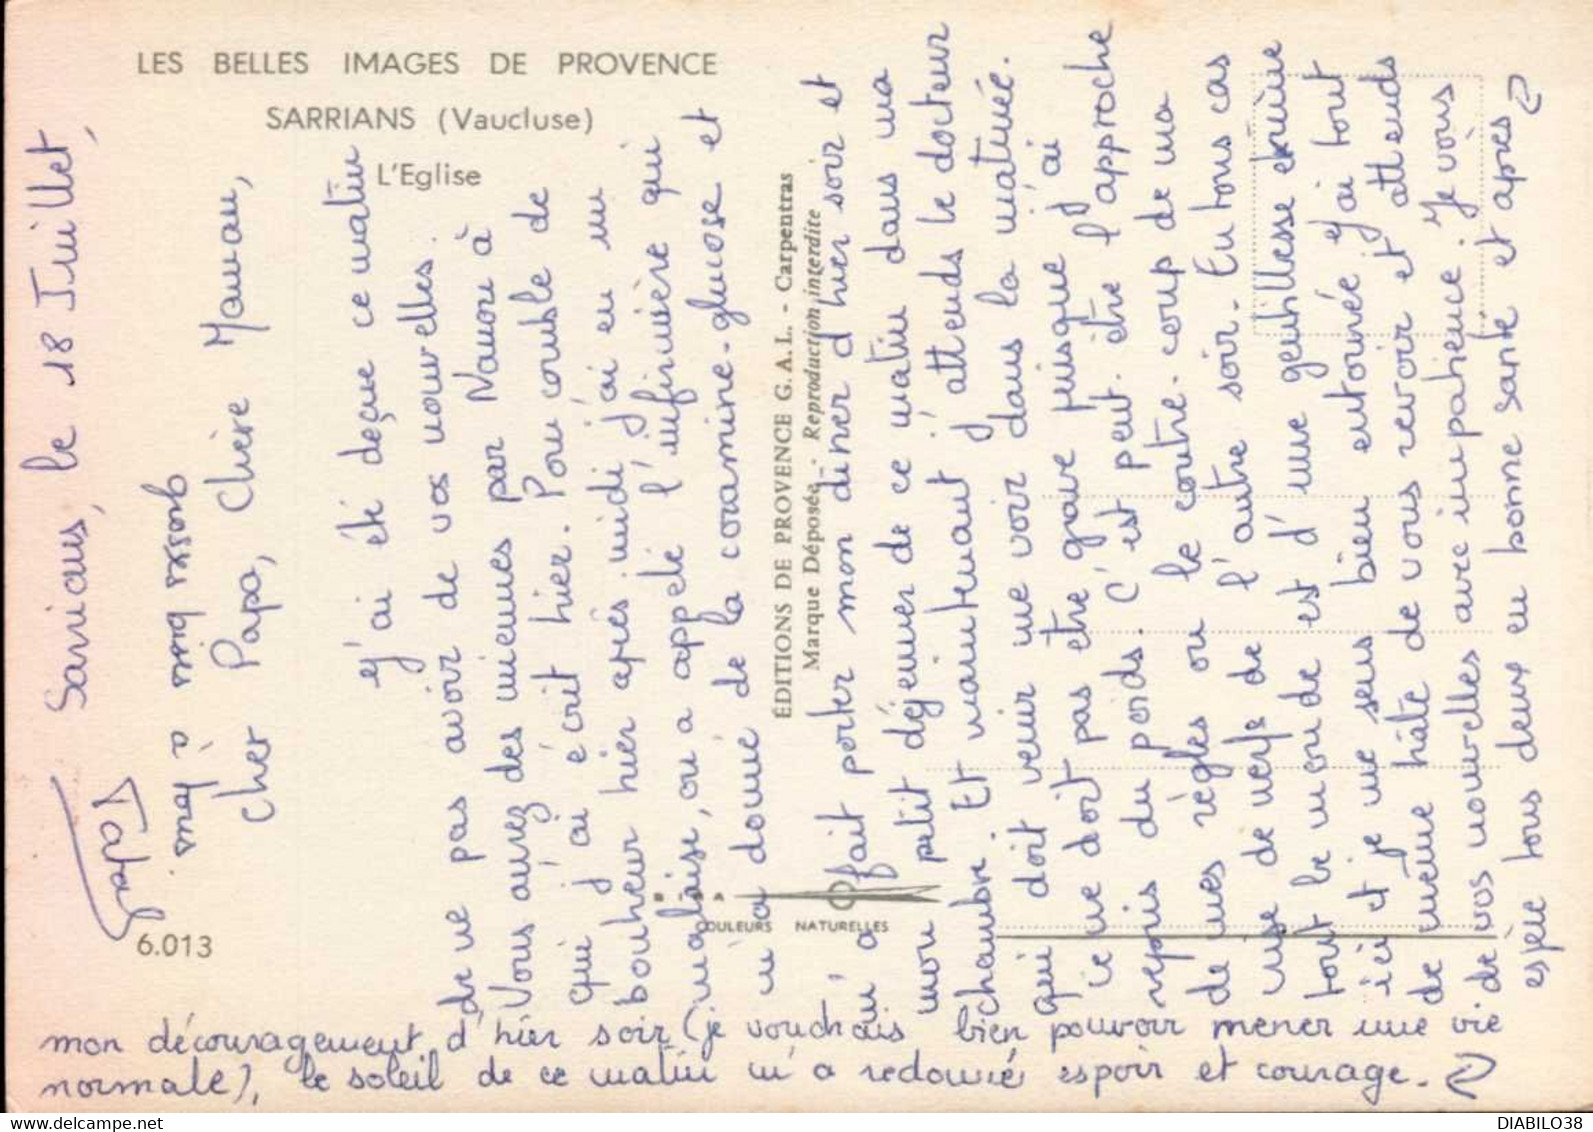 LES BELLES IMAGES DE PROVENCE
SARRIANS (Vaucluse)
L'Eglise
6.013
COULEURS NATURELLES
ÉDITIONS DE PROVENCE G. A. L. - Carpentras
Marque Déposée - Reproduction interdite
Sarrians, le 18 Juillet,
Cher Papa, Chère Maman,
J'ai été deçue ce matin
de ne pas avoir de vos nouvelles.
Vous aurez des miennes par Nanou à
qui j'ai écrit hier. Pour comble de
bonheur hier après midi j'ai eu un
malaise, on a appelé l'infirmière qui
m'a donné de la coramine-glucose et
m'a fait porter mon diner d'hier soir et
mon petit déjeuner de ce matin dans ma
chambre. Et maintenant j'attends le docteur
qui doit venir me voir dans la matinée.
ce ne doit pas etre grave puisque j'ai
repris du poids. C'est peut.être l'approche
de mes règles ou le contre-coup de ma
crise de nerfs de l'autre soir. En tous cas
tout le monde est d'une gentillesse
ici et je me sens bien entourée j'ai tout
de même hâte de vous revoir et attends
de vos nouvelles avec impatience. Je vous
espère tous deux en bonne santé et après
mon découragement d'hier soir (je voudrais bien pouvoir mener une vie
normale), le soleil de ce matin m'a redonné espoir et courage.
gros bisis à tous
DIABILO38